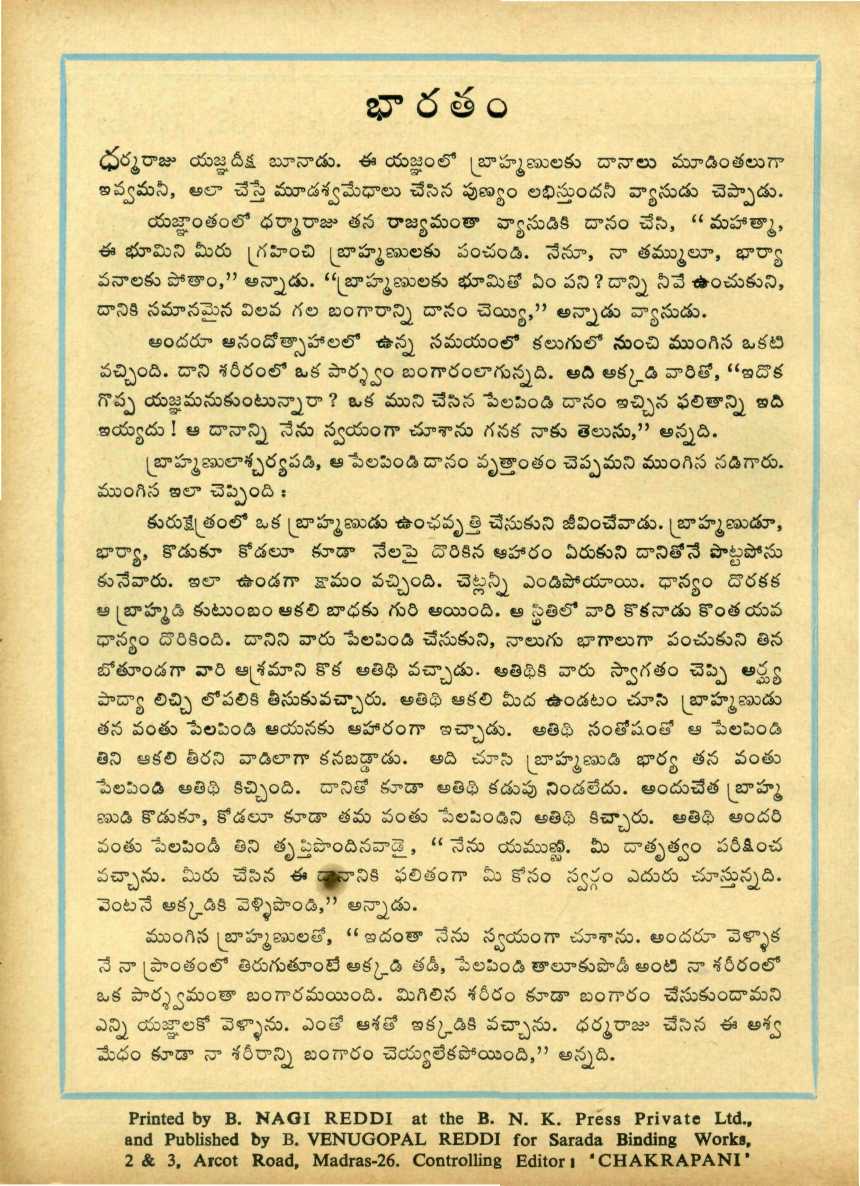 భారతం
ధర్మరాజు యజ్ఞదీక్ష బూనాడు. ఈ యజ్ఞంలో బ్రాహ్మణులకు దానాలు మూడింతలుగా
ఇవ్వమనీ, అలా చేస్తే మూడశ్వమేధాలు చేసిన పుణ్యం లభిస్తుందనీ వ్యాసుడు చెప్పాడు.
యజ్ఞాంతంలో ధర్మారాజు తన రాజ్యమంతా వ్యాసుడికి దానం చేసి, “మహాత్మా,
ఈ భూమిని మీరు గ్రహించి బ్రాహ్మణులకు పంచండి. నేనూ, నా తమ్ములూ, భార్యా
వనాలకు పోతాం,” అన్నాడు. “బ్రాహ్మణులకు భూమితో ఏం పని? దాన్ని నీవే ఉంచుకుని,
దానికి సమానమైన విలవ గల బంగారాన్ని దానం చెయ్యి,” అన్నాడు వ్యాసుడు.
అందరూ ఆనందోత్సాహాలలో ఉన్న సమయంలో కలుగులో నుంచి ముంగిస ఒకటి
వచ్చింది. దాని శరీరంలో ఒక పార్శ్వం బంగారంలాగున్నది. అది అక్కడి వారితో, “ఇదొక
గొప్ప యజ్ఞమనుకుంటున్నారా? ఒక ముని చేసిన పేలపిండి దానం ఇచ్చిన ఫలితాన్ని ఇది
ఇయ్యదు! ఆ దానాన్ని నేను స్వయంగా చూశాను గనక నాకు తెలును,” అన్నది.
బ్రాహ్మణులాశ్చర్యపడి, ఆ పేలపిండి దానం వృత్తాంతం చెప్పమని ముంగిస నడిగారు.
ముంగిస ఇలా చెప్పింది:
కురుక్షేత్రంలో ఒక బ్రాహ్మణుడు ఉంఛవృత్తి చేసుకుని జీవించేవాడు. బ్రాహ్మణుడూ,
భార్యా, కొడుకూ కోడలూ కూడా నేలపై దొరికిన ఆహారం ఏరుకుని దానితోనే పొట్టపోసు
కునేవారు. ఇలా ఉండగా క్షామం వచ్చింది. చెట్లన్నీ ఎండిపోయాయి. ధాన్యం దొరకక
ఆ బ్రాహ్మడి కుటుంబం ఆకలి బాధకు గురి అయింది. ఆ స్థితిలో వారి కొకనాడు కొంత యవ
ధాన్యం దొరికింది. దానిని వారు పేలపిండి చేసుకుని, నాలుగు భాగాలుగా పంచుకుని తిన
బోతూండగా వారి ఆశ్రమాని కొక అతిథి వచ్చాడు. అతిథికి వారు స్వాగతం చెప్పి అర్ఘ్య
పాద్యా లిచ్చి లోపలికి తీసుకువచ్చారు. అతిథి ఆకలి మీద ఉండటం చూసి బ్రాహ్మణుడు
తన వంతు పేలపిండి ఆయనకు ఆహారంగా ఇచ్చాడు. అతిథి సంతోషంతో ఆ పేలపిండి
తిని ఆకలి తీరని వాడిలాగా కనబడ్డాడు. అది చూసి బ్రాహ్మణుడి భార్య తన వంతు
పేలపిండి అతిథి కిచ్చింది. దానితో కూడా అతిథి కడుపు నిండలేదు. అందుచేత బ్రాహ్మ
ణుడి కొడుకూ, కోడలూ కూడా తమ వంతు పేలపిండిని అతిథి కిచ్చారు. అతిథి అందరి
వంతు పేలపిండీ తిని తృప్తిపొందినవాడై, “నేను యముణ్ణి. మీ దాతృత్వం పరీక్షించ
వచ్చాను. మీరు చేసిన ఈ దానానికి ఫలితంగా మీ కోసం స్వర్గం ఎదురు చూస్తున్నది.
వెంటనే అక్కడికి వెళ్ళిపొండి,” అన్నాడు.
ముంగిస బ్రాహ్మణులతో, “ఇదంతా నేను స్వయంగా చూశాను. అందరూ వెళ్ళాక
నే నా ప్రాంతంలో తిరుగుతూంటే అక్కడి తడీ, పేలపిండి తాలూకుపొడీ అంటి నా శరీరంలో
ఒక పార్శ్వమంతా బంగారమయింది. మిగిలిన శరీరం కూడా బంగారం చేసుకుందామని
ఎన్ని యజ్ఞాలకో వెళ్ళాను. ఎంతో ఆశతో ఇక్కడికి వచ్చాను. ధర్మరాజు చేసిన ఈ అశ్వ
మేధం కూడా నా శరీరాన్ని బంగారం చెయ్యలేకపోయింది,” అన్నది.
Printed by B. NAGI REDDI at the B. N. K. Press Private Ltd.,
and Published by B. VENUGOPAL REDDI for Sarada Binding Works,
2 & 3, Arcot Road, Madras-26. Controlling Editor: 'CHAKRAPANI'